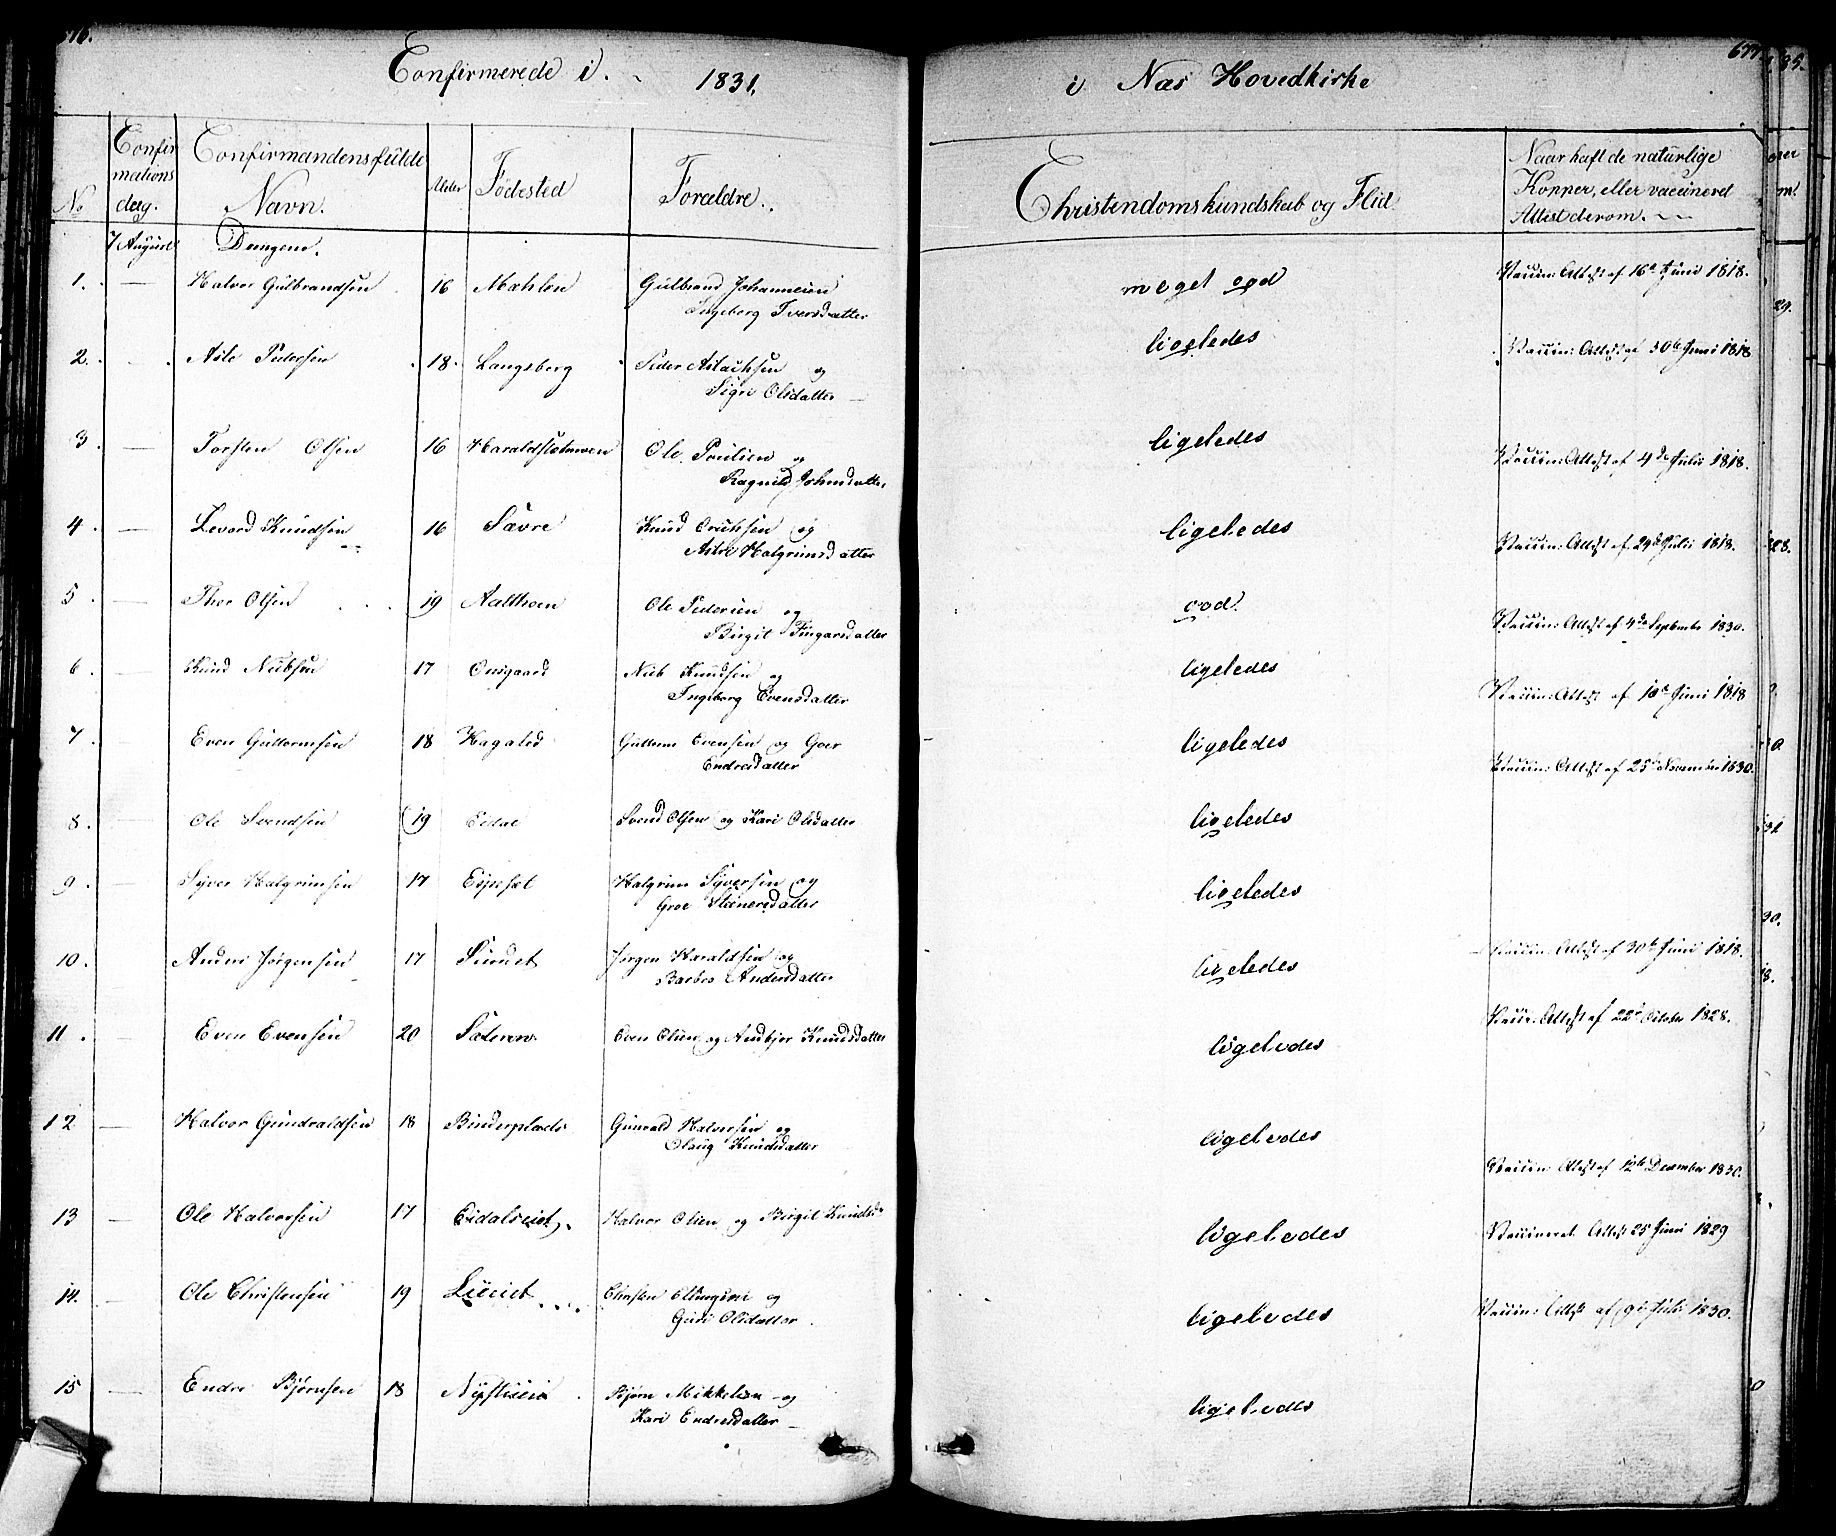 Confirmerede i. 1831. i Næs Hovedkirke
677
No
Confirmations dag.
Confirmandens fulde Navn.
Alder
Fødested
Forældre.
Christendomskundskab og Flid
Naar haft de naturlige Kopper, eller vaccineret Attest derom.
7 August Drengene.
1. Halvor Gulbrandsen 16 Mæhlen Gulbrand Johannesen meget god Vaccin: Attest af 16de Juni 1818.
Ingeborg Iversdatter
2. Asle Pedersen 18. Langsberg Peder Aslachsen og ligeledes Vaccin: Attest af 30te Juni 1818
Sigri Olsdatter
3. Torsten Olsen 16 Ole og ligeledes Vaccin: Attest af 4de Julii 1818.
Ragnild Johnsdatter
4. Levord Knudsen 16 Sævre Knud Erichsen og ligeledes Vaccin: Attest af 29de Julii 1818.
Astri Halgrimsdatter
5. Thor Olsen 19 Ole Pedersen og god. Vaccin: Attest af 4de September 1830.
Birgit Fingarsdatter
6. Knud Nielsen 17 Niels Knudsen og ligeledes Vaccin: Attest af 10de Juni 1818
Ingeborg Evensdatter
7. Even Guttormsen 18 Hagaled Guttorm Evensen og Goer ligeledes Vaccin: Attest af 25de November 1830.
Endresdatter
8. Ole Svendsen 19 Svend Olsen og Kari Olsdatter ligeledes
9. Syver Halgrimsen 17 Espeset Halgrim Syversen og ligeledes
Groe Steenersdatter
10. Anders Jørgensen 17 Jørgen Haraldsen og ligeledes Vaccin: Attest af 30te Juni 1818.
Barbro Andersdatter
11. Even Evensen 20 Even Olsen og Andbjør Knudsdatter ligeledes Vaccin: Attest af 22de October 1828.
12 Halvor Gundvaldsen 18 Gunvald Halvorsen og ligeledes Vaccin: Attest af 12te December 1830.
Olaug Knudsdatter
13 Ole Halvorsen 17 Eidalseiet, Halvor Olsen og Birgit Knudsdr ligeledes Vaccineret Attest 25 Juni 1829
14. Ole Christensen 19 og ligeledes Vaccin: Attest af 9de Juli 1830.
Guri Olsdatter
15 Endre Bjørnsen 18 Bjørn Mikkelsen og ligeledes
Kari Endresdatter